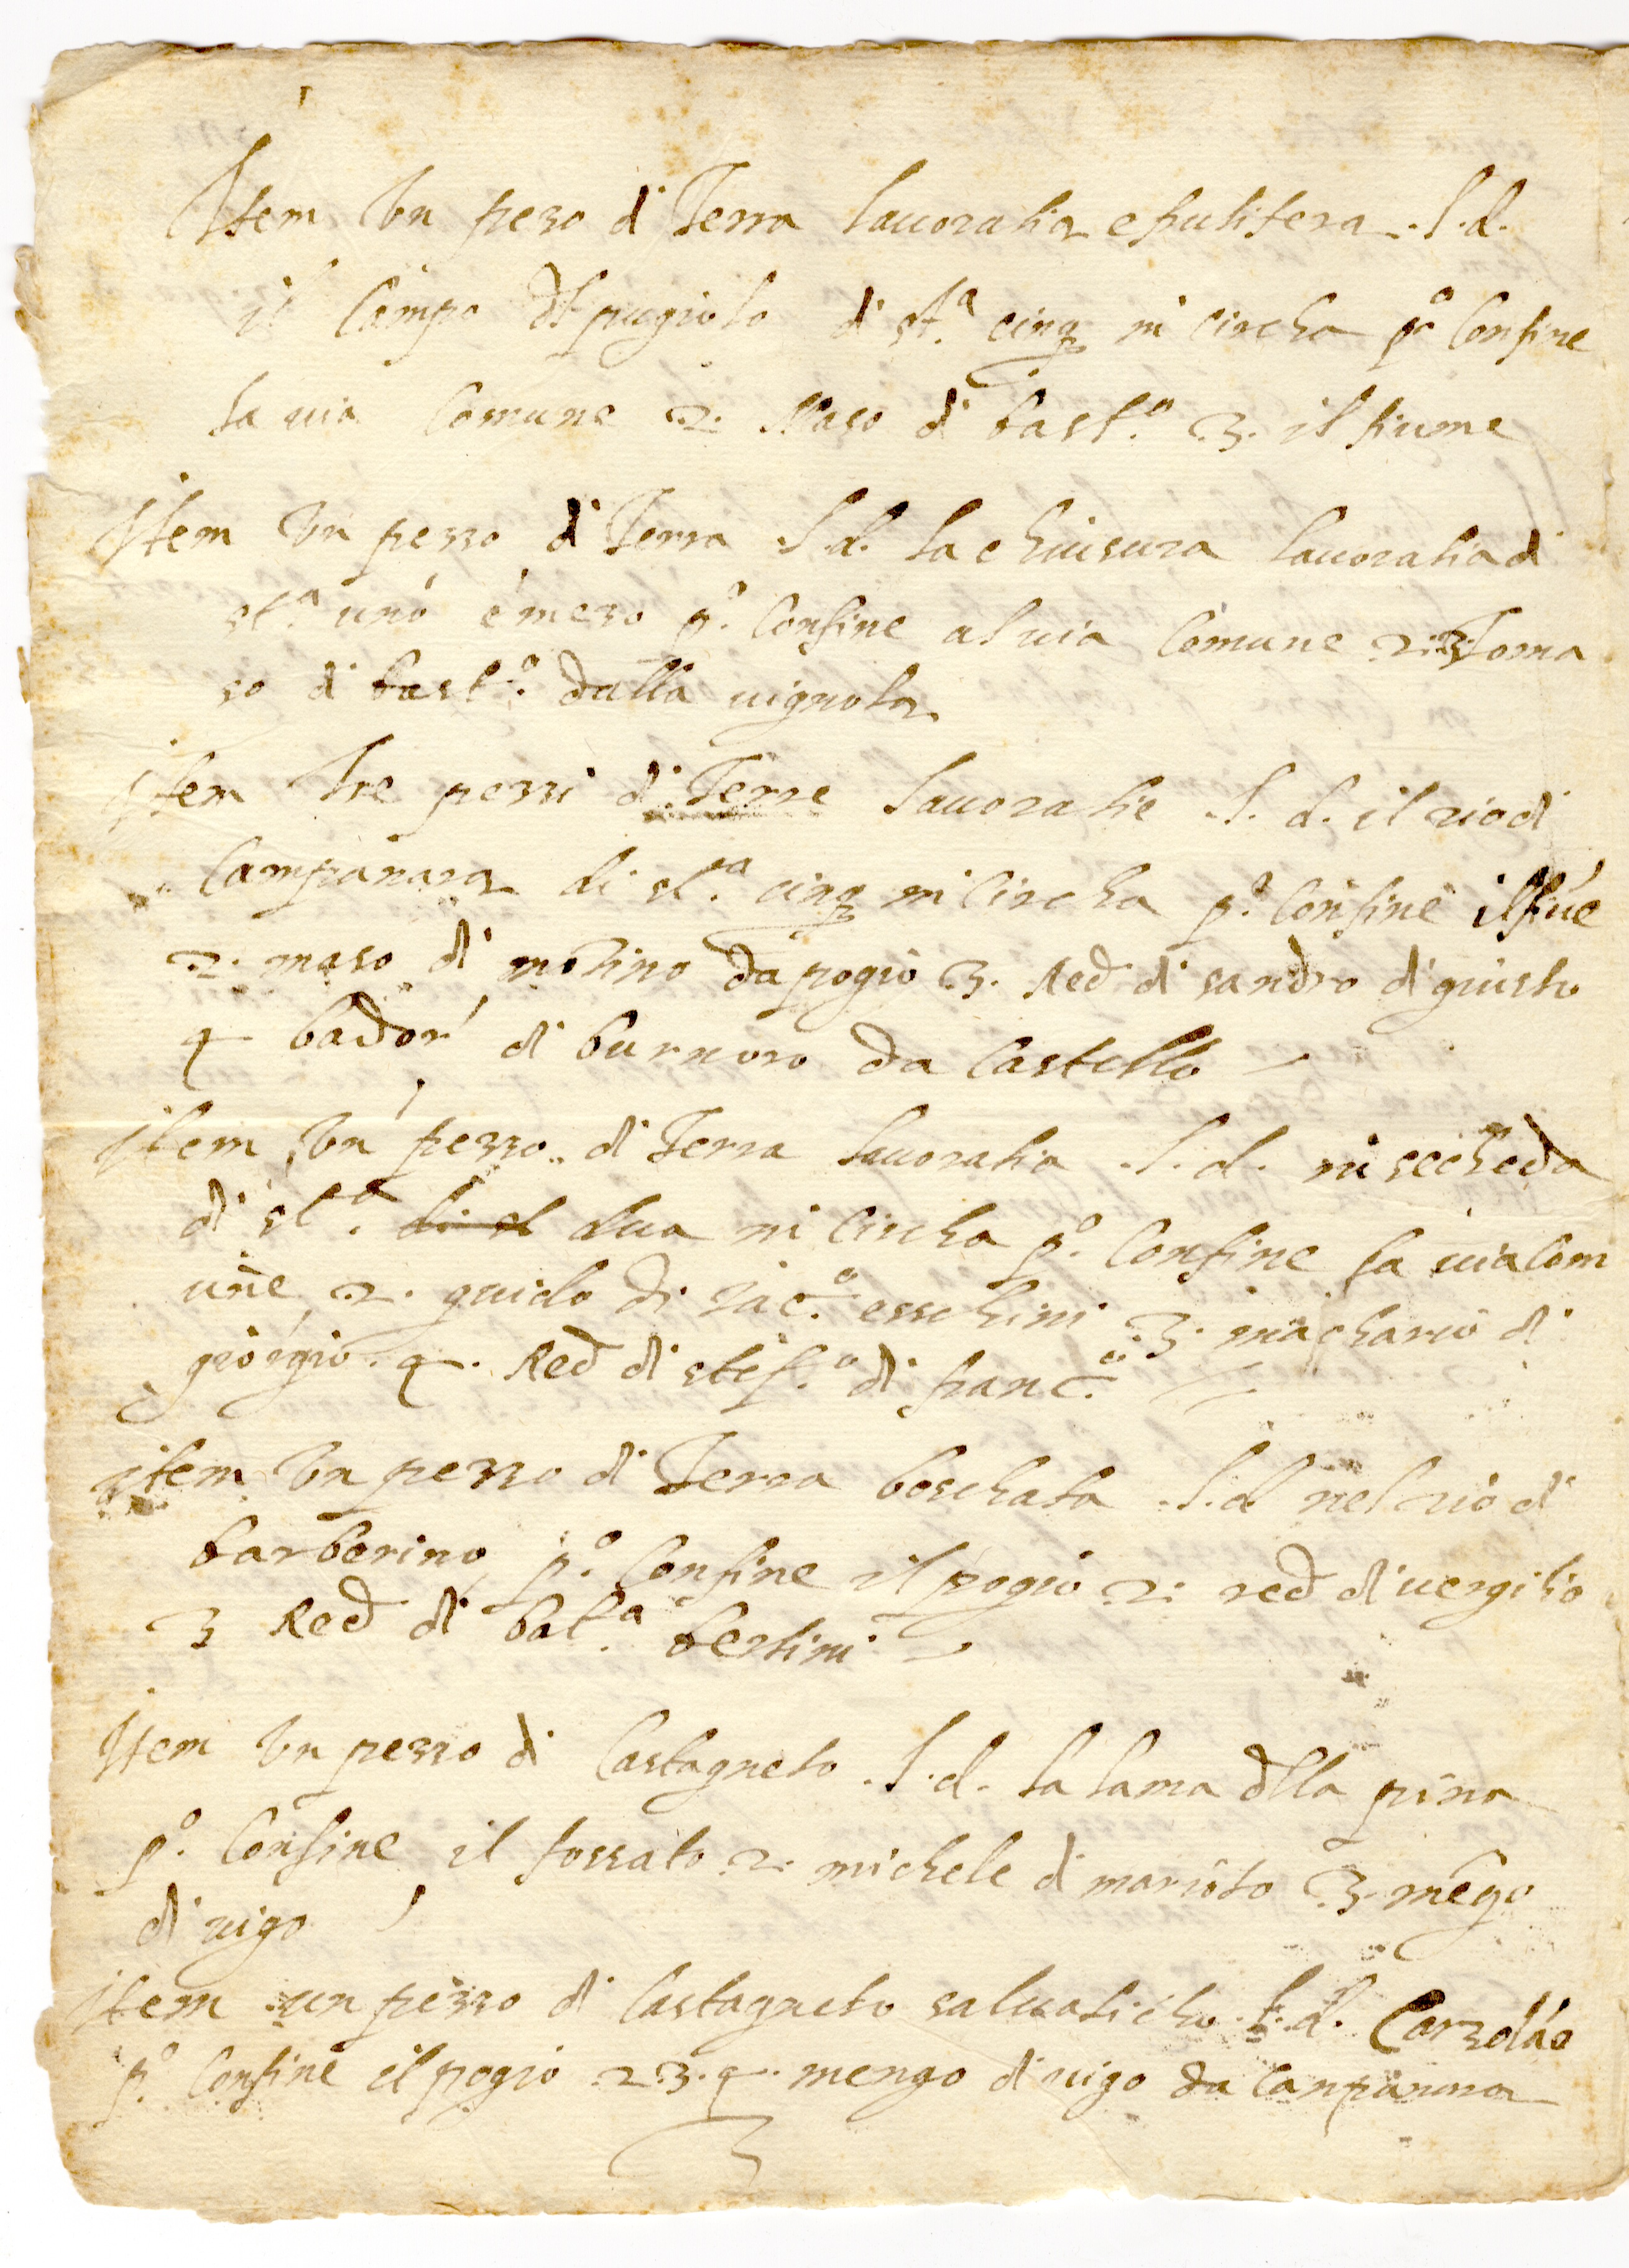 Item Un pezo di Terra lauoratia e frutifera .l.d.
il Campo del pugiolo di st.ᵃ cinq in circha pº Confine
la uia Comune 2. Maso di bast.º 3. il fiume
Item Un pezzo di Terra .l.d. la chiusura lauoratia di
st.ᵃ uno e mezo pº. Confine al uia Comune 2. 3. Toma
so di bast.º dalla uignola
Item Tre pezzi di Terre lauoratie .l.d. il rio di
Campanara di st.ᵃ cinq in Circha pº. Confine il fiūe
2. maso di molino da pogio 3. Red di sandro di giusto
4 bador di burnoro da Castello
Item Un pezzo di Terra lauoratia .l.d. in secheda
di st.ᵃ dua in Circha pº. Confine la uia Com
une 2. guido di iac.º 3. machario di
giorgio. 4. Red di stef.º di franc.º
item Un pezzo di Terra boschata .l.d nel rio di
barberino pº. Confine il pogio 2. red di uergilio
3 Red di bat.ᵃ bertini
Item Un pezzo di Castagneto .l.d. la lama dlla pina
pº. Confine il fossato 2. michele di marioto 3. mēgo
di uigo
item un pezzo di Castagneto saluaticho .l.d.
pº. Confine il pogio 2 3. 4. mengo di uigo da Canpanara